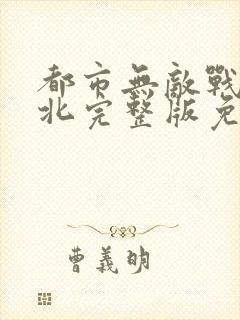 都市無敵戰
北完整版免
曹義明